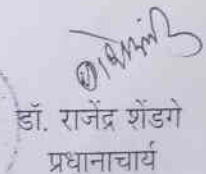 डॉ. राजेंद्र शेंडगे
प्रधानाचार्य